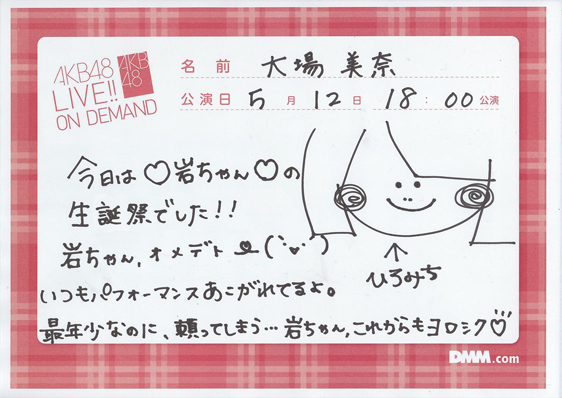 AKB48
LIVE!!
ON DEMAND
AKB
48
名前 大場美奈
公演日 5月12日 18:00公演
今日は♡岩ちゃん♡の
生誕祭でした!!
岩ちゃん,オメデト
ひろみち
いつもパフォーマンスあこがれてるよ。
最年少なのに、頼ってしまう…岩ちゃん,これからもヨロシク♡
DMM.com